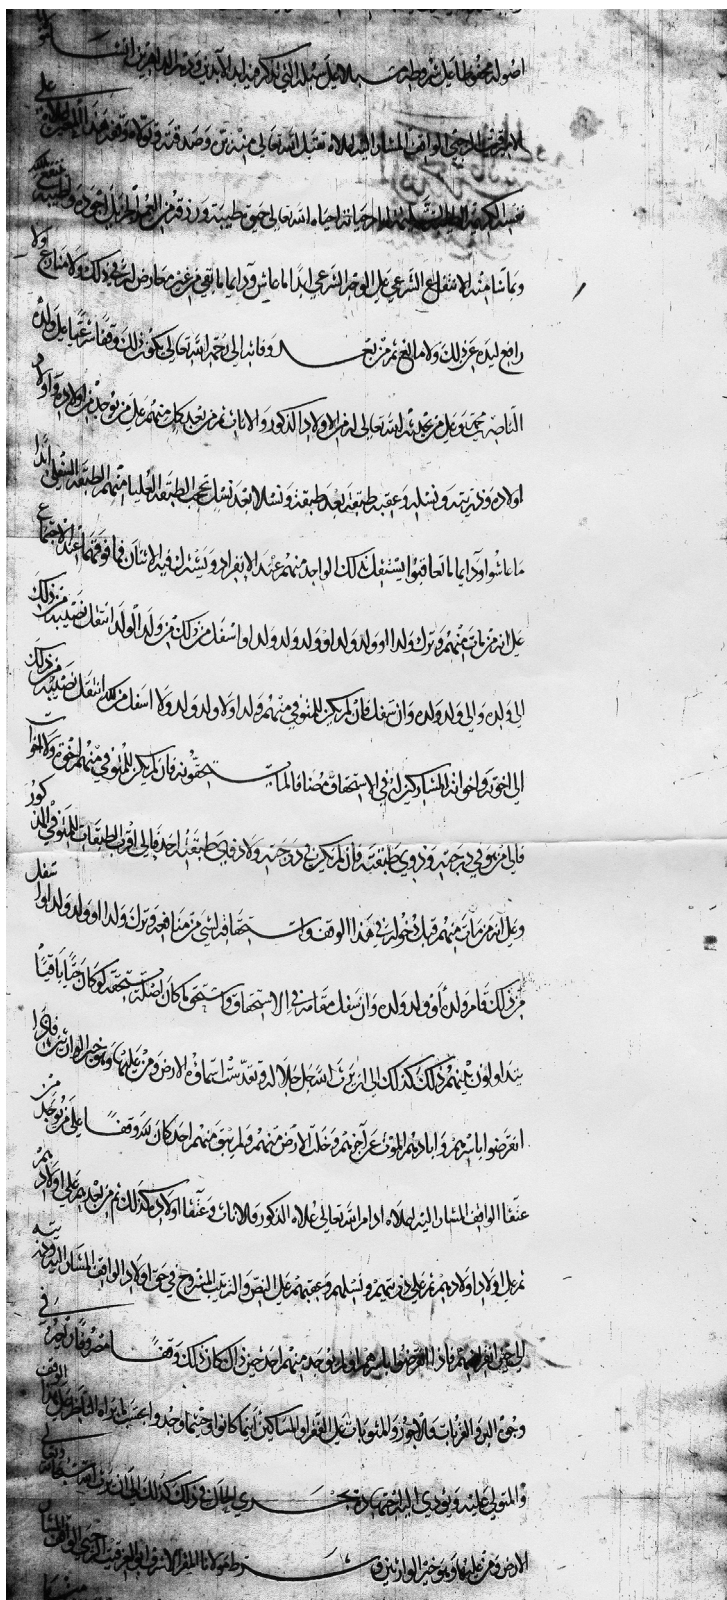 اصوله محفوظا على شروطه مسبلا على سبله التى تذكر فيه ابد الآبدين ودهر الداهرين انشا
الواقف المشار اليه اعلاه تقبل الله تعالى منه وصدقته وقفه هذا على
نفسه الكريمة ايام حياته احياه الله تعالى حياة طيبة ورزقه من العمر اطوله ينتفع بذلك
وبما شا منه الانتفاع الشرعى على الوجه الشرعى ابدا ما عاش ودايما ما بقى من غير معارض له فى ذلك ولا منازع ولا
رافع ليده عن ذلك ولا مانع ثم من بعد وفاته الى رحمة الله تعالى يكون ذلك وقفا شرعيا على ولده
الناصرى محمد وعلى من يحدثه الله تعالى له من الاولاد الذكور والاناث ثم من بعد كل منهم على من يوجد من اولاده واولاد
اولاده وذريته ونسله وعقبه طبقة بعد طبقة ونسلا بعد نسل تحجب الطبقة العليا منهم الطبقة السفلى ابدا
ما عاشوا ودايما ما تعاقبوا يستقل بذلك الواحد منهم عند الانفراد ويشترك فيه الاثنان فما فوقهما عند الاجتماع
على انه من مات منهم وترك ولدا او ولد ولد او ولد ولد ولد او اسفل من ذلك من ولد الولد انتقل نصيبه من ذلك
الى ولده والى ولد ولده وان سفل فان لم يكن للمتوفى منهم ولد ولا ولد ولد ولا اسفل من ذلك انتقل نصيبه من ذلك
الى اخوته واخواته المشاركين له فى الاستحقاق مضافا لما يستحقونه فان لم يكن للمتوفى منهم اخوة ولا اخوات
فالى من هو فى درجته وذوى طبقته فان لم يكن فى درجته ولا ذوى طبقته احد فالى اقرب الطبقات للمتوفى المذكور
وعلى انه من مات منهم قبل دخوله فى هذا الوقف واستحقاقه لشى من منافعه وترك ولدا او ولد ولد او اسفل
من ذلك قام ولده او ولد ولده وان سفل مقامه فى الاستحقاق واستحق ما كان اصله يستحقه لو كان حيا باقيا
يتداولون بينهم ذلك كذلك الى ان يرث الله جل جلاله وتقدست اسماؤه الارض ومن عليها وهو خير الوارثين فاذا
انقرضوا باسرهم وابادهم الموت عن آخرهم وخلت الارض منهم ولم يبق منهم احد كان ذلك وقفا على من يوجد من
عتقا الواقف المشار اليه اعلاه ادام الله تعالى علاه الذكور والاناث وعتقا اولاده كذلك ثم من بعدهم على اولادهم
ثم على اولاد اولادهم ثم على ذريتهم ونسلهم وعقبهم على النص والترتيب المشروح فى حق اولاد الواقف المشار اليه وذريته
الى حين انقراضهم فاذا انقرضوا باسرهم ولم يوجد منهم احد حين ذاك كان ذلك وقفا مصروفا فى
وجوه البر والقربات والاجور والمثوبات على الفقرا والمساكين اينما كانوا وحيثما وجدوا بحسب ما يراه الناظر على هذا الوقف
والمتولى عليه ويؤدى اليه اجتهاده يجرى الحال فى ذلك كذلك الى ان يرث الله سبحانه وتعالى
الارض ومن عليها وهو خير الوارثين وشرط مولانا المقر الاشرف الواقف المشار